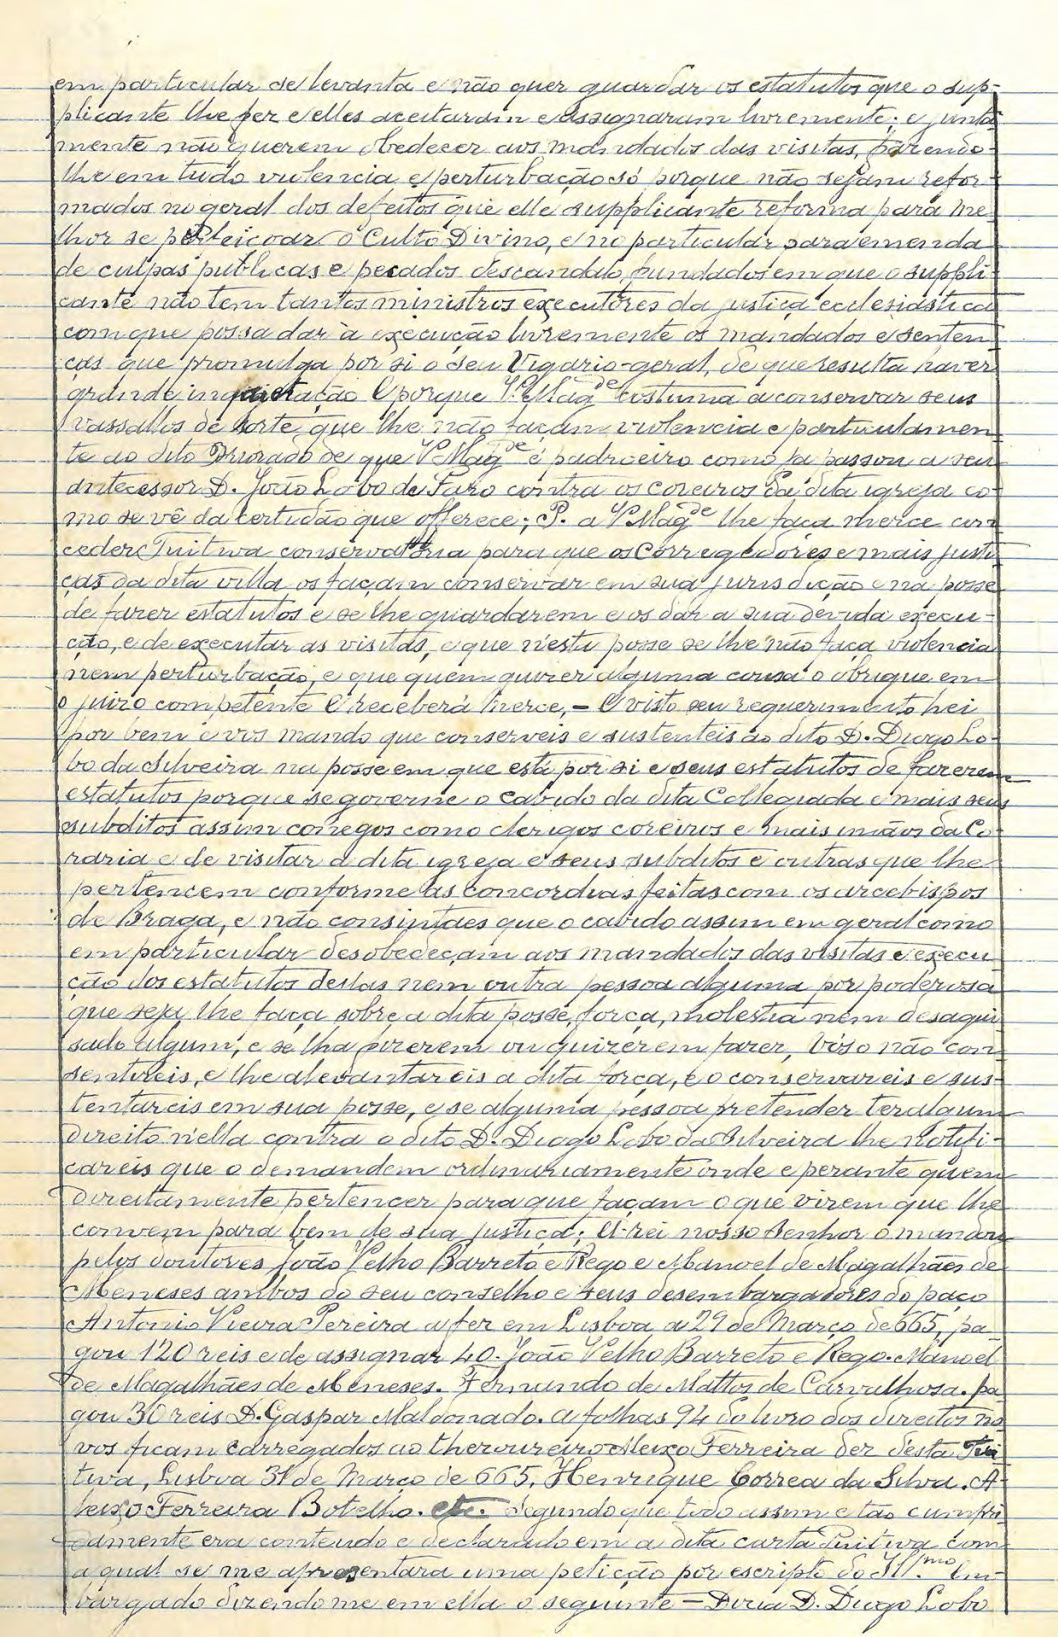 em particular se levanta e não quer guardar os estatutos que o sup-
plicante lhe fez e elles aceitaram e assignaram livremente; e junta
mente não querem obedecer aos mandados das visitas, fazendo-
lhe em tudo violencia e perturbação só porque não sejam refor-
mados no geral dos defeitos que elle supplicante reforma para me-
lhor se perfeiçoar o Culto Divino, e no particular para emenda
de culpas publicas e pecados d'escandalo, fundados em que o suppli-
cante não tem tantos ministros executores da justiça ecclesiastica
com que possa dar à execução livremente os mandados e senten
ças que promulga por si o seu Vigario-geral, de que resulta haver
grande inquietação E porque V. Magde costuma a conservar seus
vassallos de sorte que lhe não façam violencia e particularmen
te ao dito Priorado de que V. Magde é padroeiro como já passou a seu
antecessor D. João Lobo de Faro contra os coreiros da dita igreja co-
mo se vê da certidão que offerece; P. a V. Magde lhe faça merce con
ceder Tuitiva conservatoria para que os Corregedores e mais justi
ças da dita villa os façam conservar em sua jurisdição e na posse
de fazer estatutos e se lhe guardarem e os dar a sua devida execu-
ção, e de executar as visitas, e que n'esta posse se lhe não faça violencia
nem perturbação, e que quem quizer alguma cousa o obrigue em
o juizo competente E receberá merce, — E visto seu requerimento hei
por bem e vos mando que conserveis e sustenteis ao dito D. Diogo Lo-
bo da Silveira na posse em que está por si e seus estatutos de fazerem
estatutos porque se governe o cabido da dita Collegiada e mais seus
subditos assim conegos como clerigos coreiros e mais irmãos da Co-
raria e de visitar a dita igreja e seus subditos e outras que lhe
pertencem conforme as concordias feitas com os arcebispos
de Braga, e não consintaes que o cabido assim em geral como
em particular desobedeçam aos mandados das visitas e execu
ção dos estatutos dellas nem outra pessoa alguma por poderosa
que seja lhe faça sobre a dita posse, força, molestia nem desagui
sado algum, e se lha fizerem ou quizerem fazer, vós o não con
sentireis, e lhe alevantareis a dita força, e o conservareis e sus-
tentareis em sua posse, e se alguma pessoa pretender ter algum
direito n'ella contra o dito D. Diogo Lobo da Silveira lhe notifi-
careis que o demandem ordinariamente onde e perante quem
direitamente pertencer para que façam o que virem que lhe
convem para bem de sua justiça; El-rei nosso Senhor o mandou
pelos doutores João Velho Barreto e Rego e Manoel de Magalhães de
Meneses ambos do seu conselho e seus desembargadores do paço
Antonio Vieira Pereira a fez em Lisboa a 29 de Março de 665, pa-
gou 120 reis e de assignar 40. João Velho Barreto e Rego. Manoel
de Magalhães de Meneses. Fernando de Mattos de Carvalhosa. pa
gou 30 reis D. Gaspar Maldonado. a folhas 94 do livro dos direitos no
vos ficam carregados ao thezoureiro Aleixo Ferreira dez d'esta Tui
tiva, Lisboa 31 de Março de 665, Henrique Correa da Silva. A-
leixo Ferreira Botelho. etc. Segundo que todo assim e tão cumpri
damente era conteudo e declarado em a dita carta Tuitiva com
a qual se me apresentara uma petição por escripto do Illmo Em-
bargado dizendo me em ella o seguinte — Dizia D. Diogo Lobo